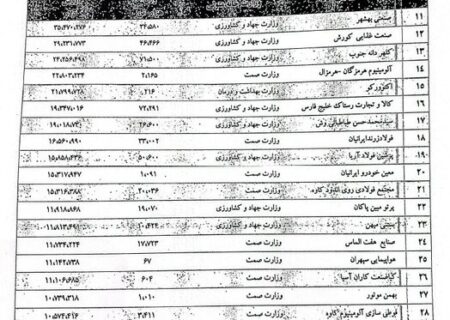 ۱۱ صنعتی بهشهر وزارت جهاد و کشاورزی ۳۶،۵۸۰ ۳۵،۴۷۰،۲۷۶
۱۲ صنعت غذایی کورش وزارت جهاد و کشاورزی ۴۶،۴۶۶ ۲۹،۲۳۱،۷۷۳
۱۳ گلهر دانه جنوب وزارت جهاد و کشاورزی ۷۱،۵۰۰
۱۴ آلومینیوم هرمزگان -هرمزال وزارت صمت ۲،۱۶۵ ۲۲،۸۰۳،۲۳۴
۱۵ اکتوورکو وزارت بهداشت و درمان ۲۱۶ ۲۱،۷۹۹،۷۲۸
۱۶ کالا و تجارت رستاک خلیج فارس وزارت جهاد و کشاورزی ۷۲،۲۹۱ ۱۹،۳۴۷،۰۱۶
۱۷ سیدمحمدحسن طباطبایی وزارت جهاد و کشاورزی ۲۶،۶۰۰
۱۸ فولادزرندایرانیان وزارت صمت ۳۳،۰۰۲ ۱۶،۵۶۰،۹۹۰
۱۹ پرشین فولاد آریا وزارت صمت ۵۰،۶۰۰
۲۰ معین خودرو ایرانیان وزارت صمت ۱،۰۹۱ ۱۵،۳۱۷،۹۴۷
۲۱ مجتمع فولادی روی اندود کاوه وزارت صمت ۲۰،۰۳۶ ۱۵،۳۱۶،۳۸۸
۲۲ پرتو مبین پاکان وزارت جهاد و کشاورزی ۱۹،۰۷۰ ۱۱،۹۱۸،۸۶۸
۲۳ میهن وزارت جهاد و کشاورزی
۲۴ صنایع هفت الماس وزارت صمت ۱۷،۷۲۳ ۱۱،۷۳۴،۲۲۴
۲۵ هواپیمایی سپهران وزارت صمت ۶۷ ۱۱،۱۴۲،۷۳۸
۲۶ کیاصنعت کاران آسیا وزارت صمت ۶۰۴ ۱۱،۱۰۶،۶۸۵
۲۷ بهمن موتور وزارت صمت ۱،۰۱۰ ۱۰،۷۳۹،۳۱۸
۲۸ قوطی سازی آلومینیوم کاوه وزارت صمت ۳،۴۱۱ ۱۰،۵۷۴،۴۱۶